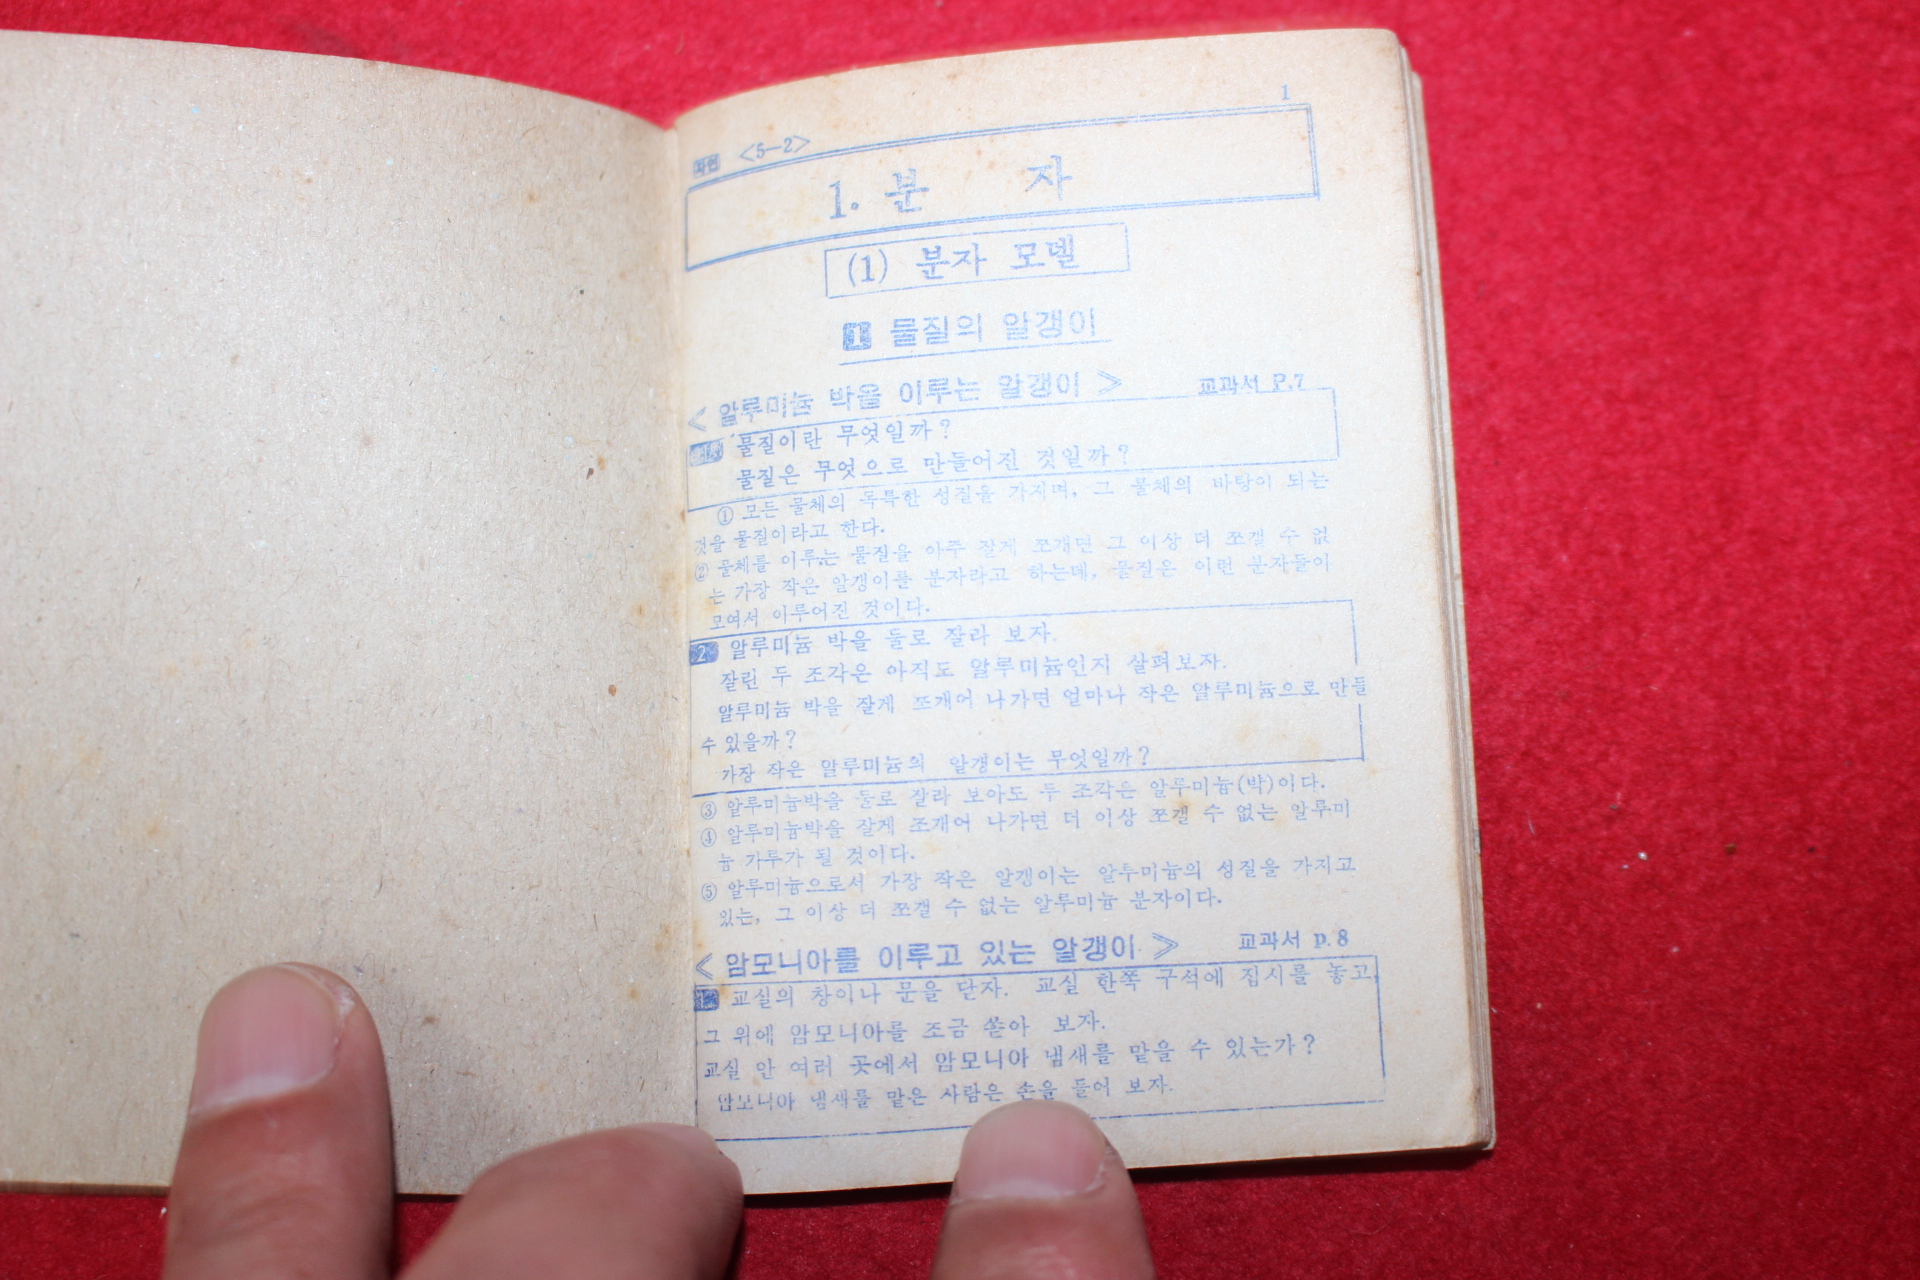 1
자연 <5-2>
1. 분 자
(1) 분자 모델
1 물질의 알갱이
< 알루미늄 박을 이루는 알갱이 > 교과서 P.7
물질이란 무엇일까?
물질은 무엇으로 만들어진 것일까?
① 모든 물체의 독특한 성질을 가지며, 그 물체의 바탕이 되는
것을 물질이라고 한다.
② 물체를 이루는 물질을 아주 잘게 쪼개면 그 이상 더 쪼갤 수 없
는 가장 작은 알갱이를 분자라고 하는데, 물질은 이런 분자들이
모여서 이루어진 것이다.
2 알루미늄 박을 둘로 잘라 보자.
잘린 두 조각은 아직도 알루미늄인지 살펴보자.
알루미늄 박을 잘게 쪼개어 나가면 얼마나 작은 알루미늄으로 만들
수 있을까?
가장 작은 알루미늄의 알갱이는 무엇일까?
③ 알루미늄박을 둘로 잘라 보아도 두 조각은 알루미늄(박)이다.
④ 알루미늄박을 잘게 쪼개어 나가면 더 이상 쪼갤 수 없는 알루미
늄 가루가 될 것이다.
⑤ 알루미늄으로서 가장 작은 알갱이는 알루미늄의 성질을 가지고
있는, 그 이상 더 쪼갤 수 없는 알루미늄 분자이다.
< 암모니아를 이루고 있는 알갱이 > 교과서 p.8
교실의 창이나 문을 닫자. 교실 한쪽 구석에 접시를 놓고,
그 위에 암모니아를 조금 쏟아 보자.
교실 안 여러 곳에서 암모니아 냄새를 맡을 수 있는가?
암모니아 냄새를 맡은 사람은 손을 들어 보자.